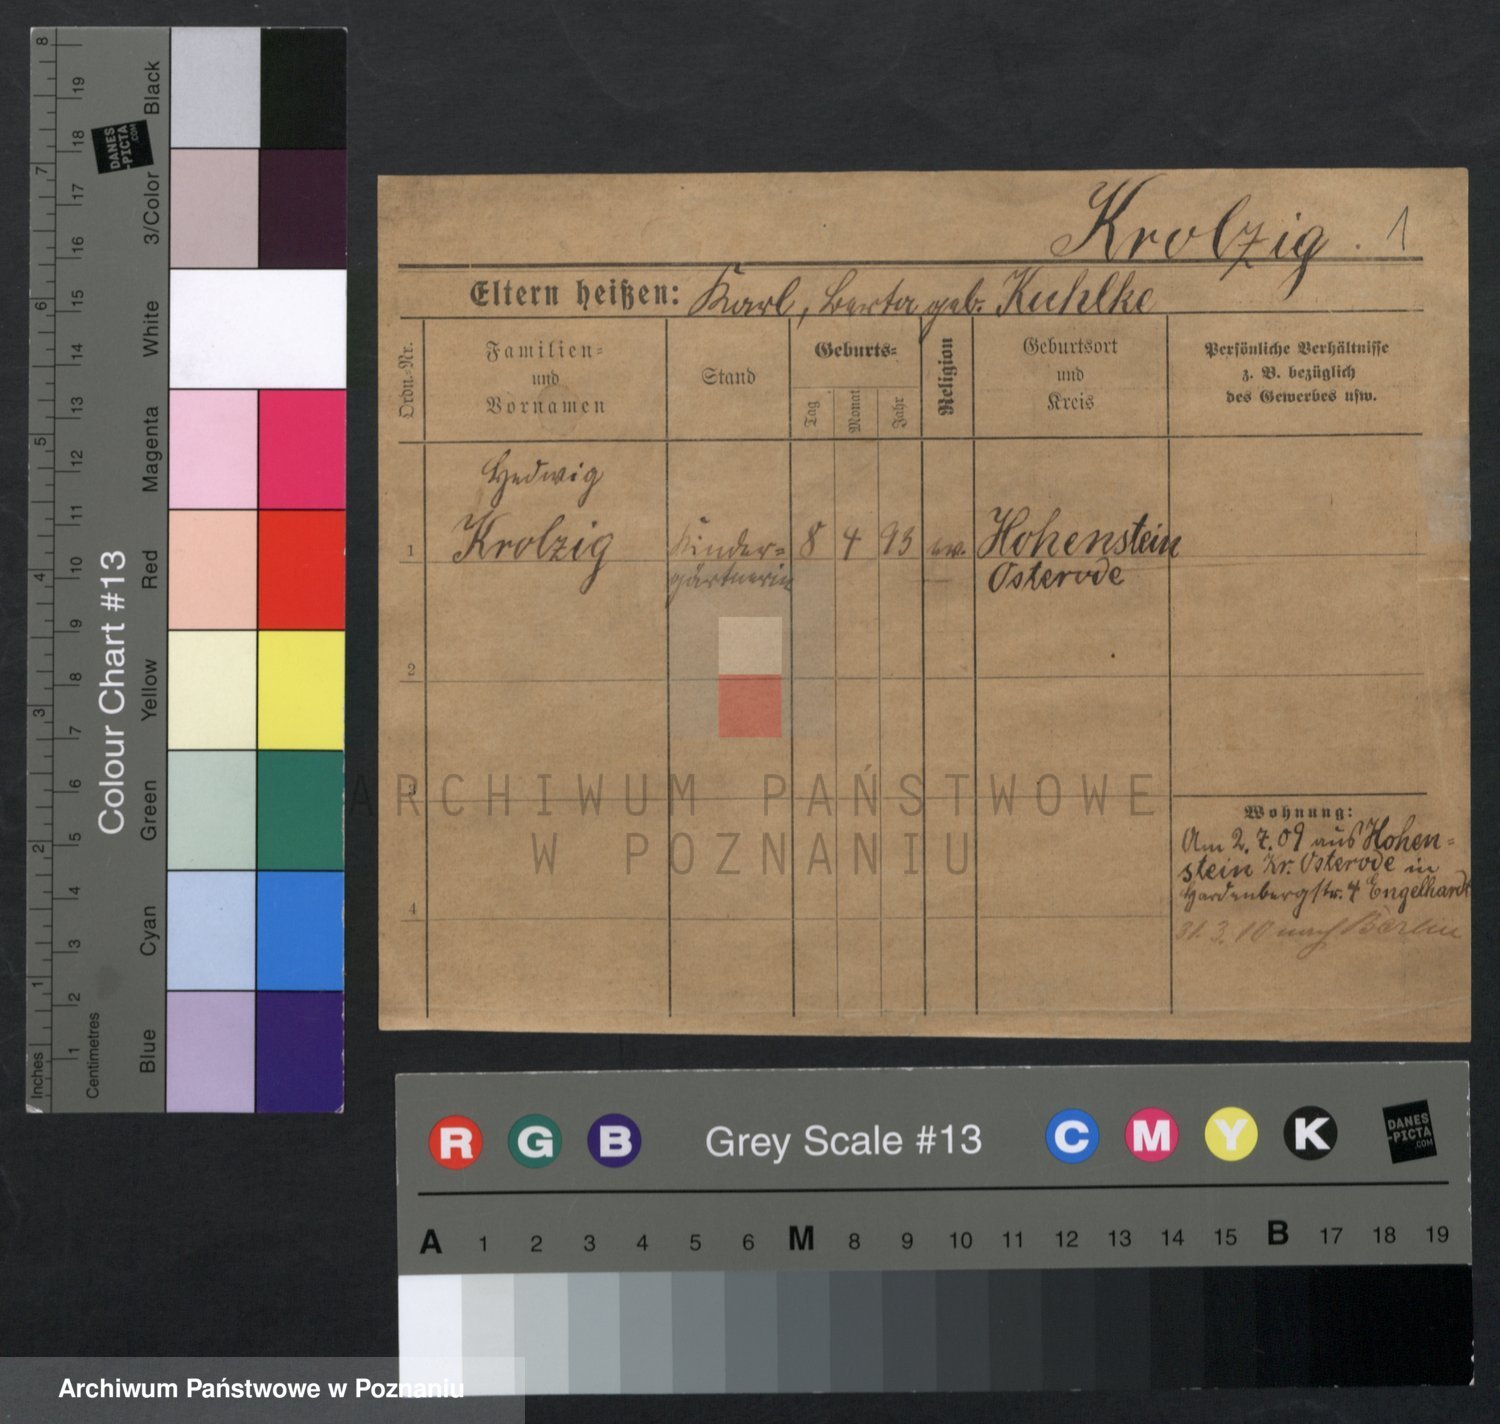 Krolzig. 1
Eltern heißen: Karl, Berta geb. Kuhlke
Ordn.-Nr.
Familien-
und
Vornamen
Stand
Geburts-
Tag
Monat
Jahr
Religion
Geburtsort
und
Kreis
Persönliche Verhältnisse
z. B. bezüglich
des Gewerbes usw.
Hedwig
1 Krolzig Kinder- 8 4 93 ev. Hohenstein
gärtnerin Osterode
2
3
4
Wohnung:
Am 2.7.09 aus Hohen-
stein Kr. Osterode in
Hardenbergstr. 4 Engelhardt
31.3.10 nach Berlin
ARCHIWUM PAŃSTWOWE
W POZNANIU
Colour Chart #13
Inches
1 2 3 4 5 6 7 8
Centimetres
1 2 3 4 5 6 7 8 9 10 11 12 13 14 15 16 17 18 19
Blue
Cyan
Green
Yellow
Red
Magenta
White
3/Color
Black
DANES
-PICTA
.COM
R G B Grey Scale #13 C M Y K
DANES
-PICTA
.COM
A 1 2 3 4 5 6 M 8 9 10 11 12 13 14 15 B 17 18 19
Archiwum Państwowe w Poznaniu